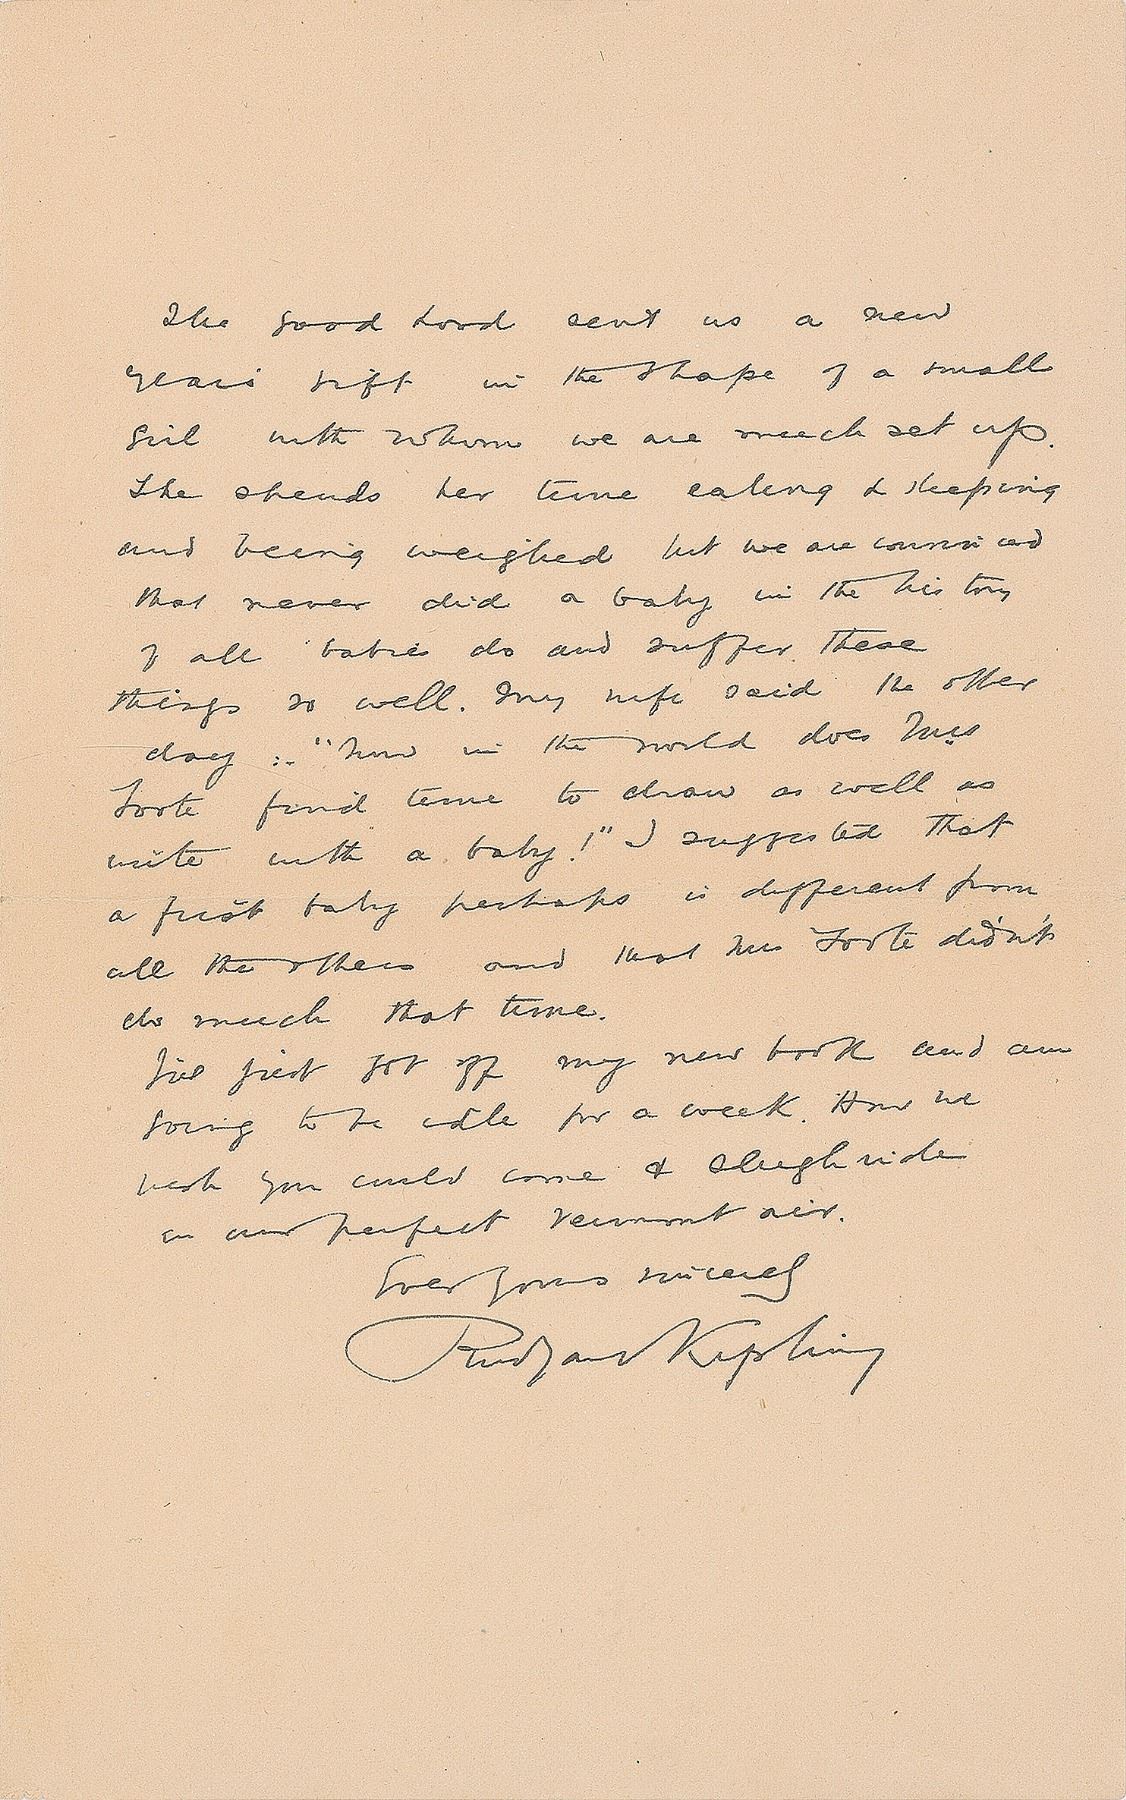 The good Lord sent us a new
years gift in the shape of a small
girl with whom we are much set up.
She spends her time eating & sleeping
and being weighed but we are convinced
that never did a baby in the history
of all babies do and suffer these
things so well. My wife said the other
day :- "how in the world does Mrs
Foote find time to draw as well as
write with a baby!" I suggested that
a first baby perhaps is different from
all the others and that Mrs Foote didn't
do much that time.
I've just got off my new book and am
going to be idle for a week. How we
wish you could come & sleigh ride
in our perfect Vermont air.
Ever yours sincerely
Rudyard Kipling